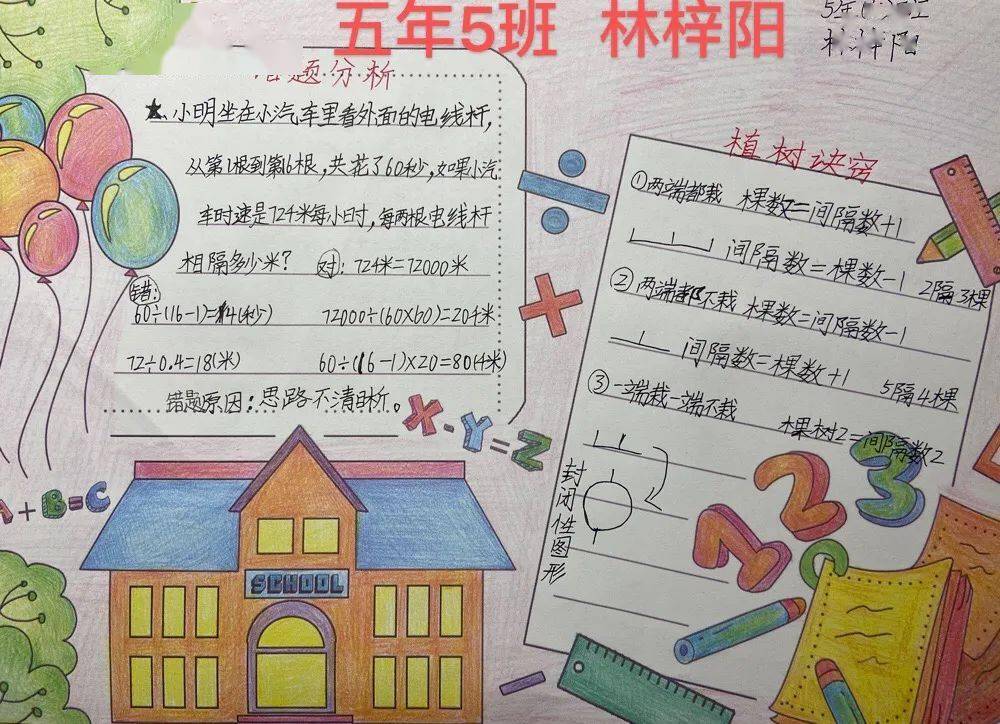 五年5班 林梓阳
题分析
★小明坐在小汽车里看外面的电线杆，
从第1根到第16根，共花了60秒，如果小汽
车时速是72千米每小时，每两根电线杆
相隔多少米？ 对：72千米=72000米
错：
60÷(16-1)=4(秒) 72000÷(60×60)=20千米
72÷0.4=18(米) 60÷(16-1)×20=80(千米)
错题原因：思路不清晰。
X-Y=Z
A+B=C
SCHOOL
植树诀窍
①两端都栽 棵数=间隔数+1
间隔数=棵数-1 2隔3棵
②两端都不栽 棵数=间隔数-1
间隔数=棵数+1 5隔4棵
③一端栽一端不栽
棵树2=间隔数2
封闭性图形
123